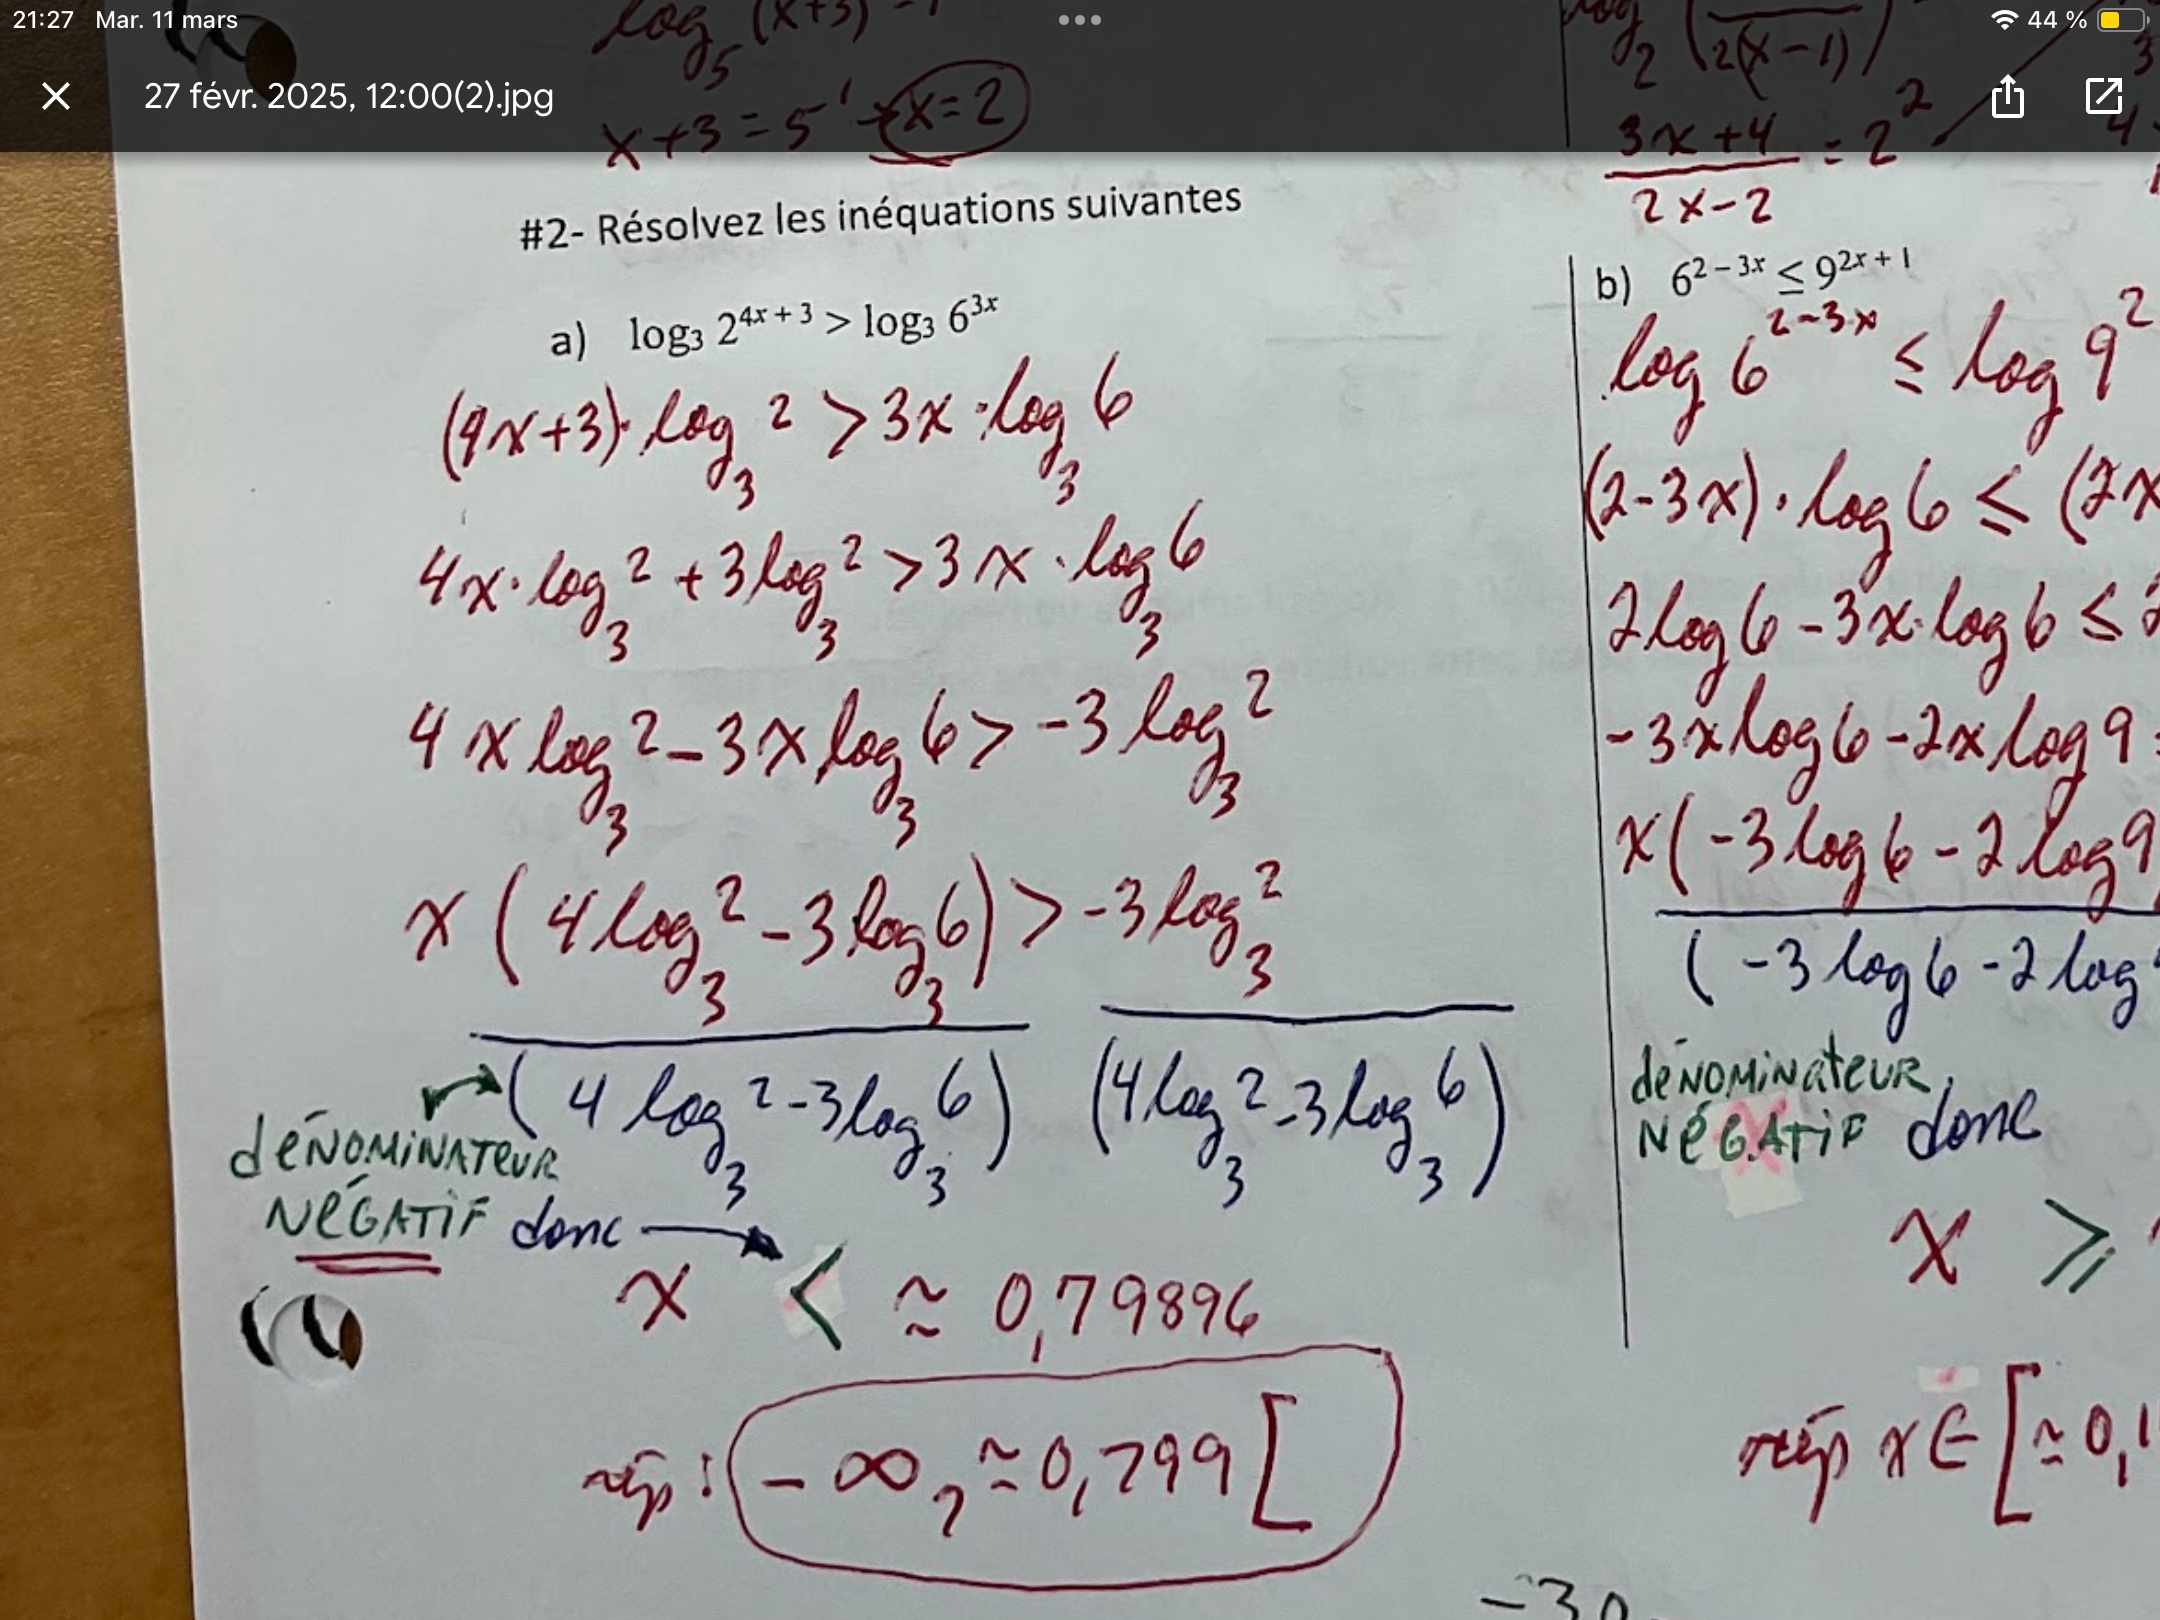 21:27 Mar. 11 mars
44 %
27 févr. 2025, 12:00(2).jpg
log₅ (x+3) = 1
x+3 = 5¹ → x=2
#2- Résolvez les inéquations suivantes
a) log₃ 2^(4x + 3) > log₃ 6^(3x)
(4x+3)·log₃ 2 > 3x·log₃ 6
4x·log₃ 2 + 3log₃ 2 > 3x·log₃ 6
4x log₃ 2 - 3x log₃ 6 > -3 log₃ 2
x (4 log₃ 2 - 3 log₃ 6) > -3 log₃ 2
(4 log₃ 2 - 3 log₃ 6) (4 log₃ 2 - 3 log₃ 6)
dénominateur
négatif donc
x < ≃ 0,79896
rép : -∞, ≃0,799[
log₂ ( / 2(x-1))
3x+4 / 2x-2 = 2²
b) 6^(2 – 3x) ≤ 9^(2x + 1)
log 6^(2-3x) ≤ log 9^2
(2-3x)·log 6 ≤ (2x
2log 6 - 3x·log 6 ≤ 2
-3x log 6 - 2x log 9
x(-3 log 6 - 2 log 9
(-3 log 6 - 2 log
dénominateur
négatif donc
x ≥
rép x∈[≃0,1
-3